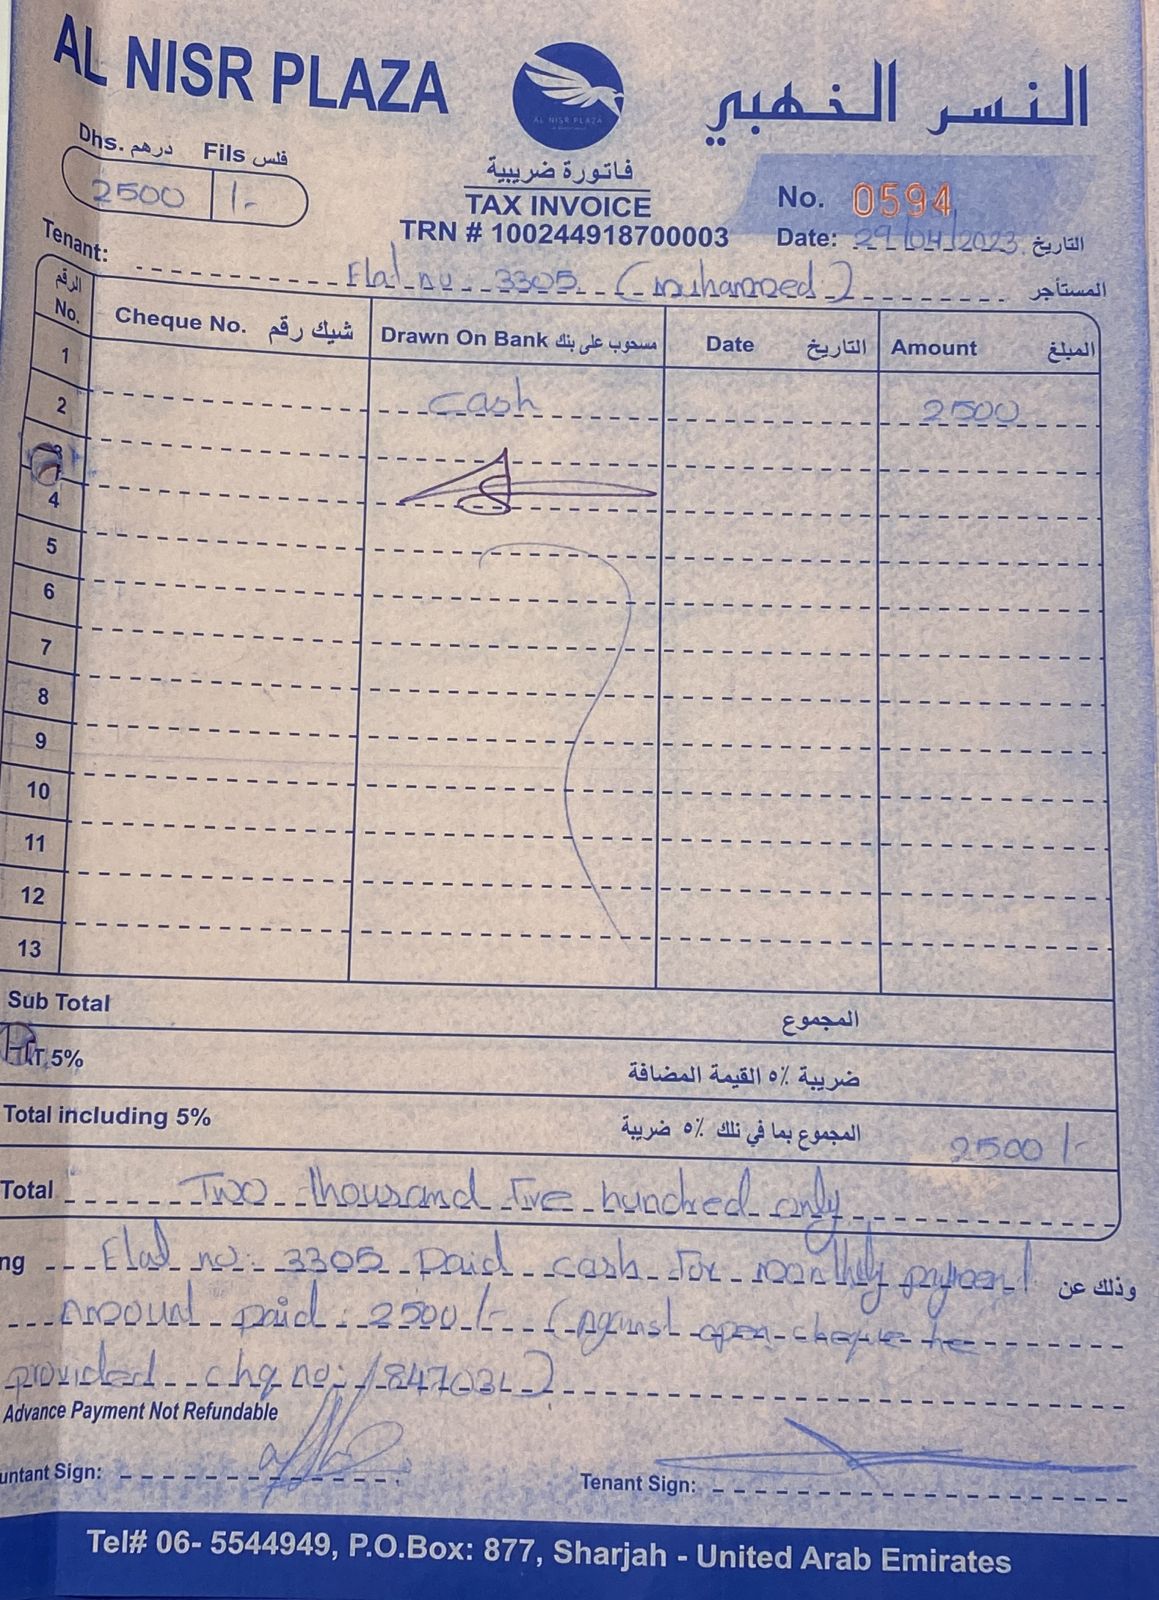 AL NISR PLAZA
AL NISR PLAZA
النسر الذهبي
Dhs. درهم Fils فلس
2500 /-
فاتورة ضريبية
TAX INVOICE
TRN # 100244918700003
No. 0594
Date: 29/04/2023 التاريخ
Tenant: Flat no 3305 (muhammed) المستأجر
الرقم No. Cheque No. شيك رقم Drawn On Bank مسحوب على بنك Date التاريخ Amount المبلغ
1
2 cash 2500
3
4
5
6
7
8
9
10
11
12
13
Sub Total المجموع
T 5% ضريبة ٥٪ القيمة المضافة
Total including 5% المجموع بما في ذلك ٥٪ ضريبة 2500/-
Total Two thousand five hundred only
ng Flat no: 3305 Paid cash for monthly payment وذلك عن
Amount paid: 2500/- (Against open cheque he
provided chq no:
Advance Payment Not Refundable
untant Sign: Tenant Sign:
Tel# 06- 5544949, P.O.Box: 877, Sharjah - United Arab Emirates